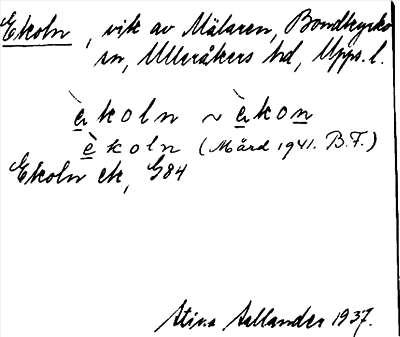 Ekoln, vik av Mälaren, Bondkyrko
sn, Ulleråkers hd, Upps. l.
è̱koln ~ è̱kon̲
è̱koln (Mård 1941. B.F.)
Ekoln ek, G84
Stina Aallander 1937.